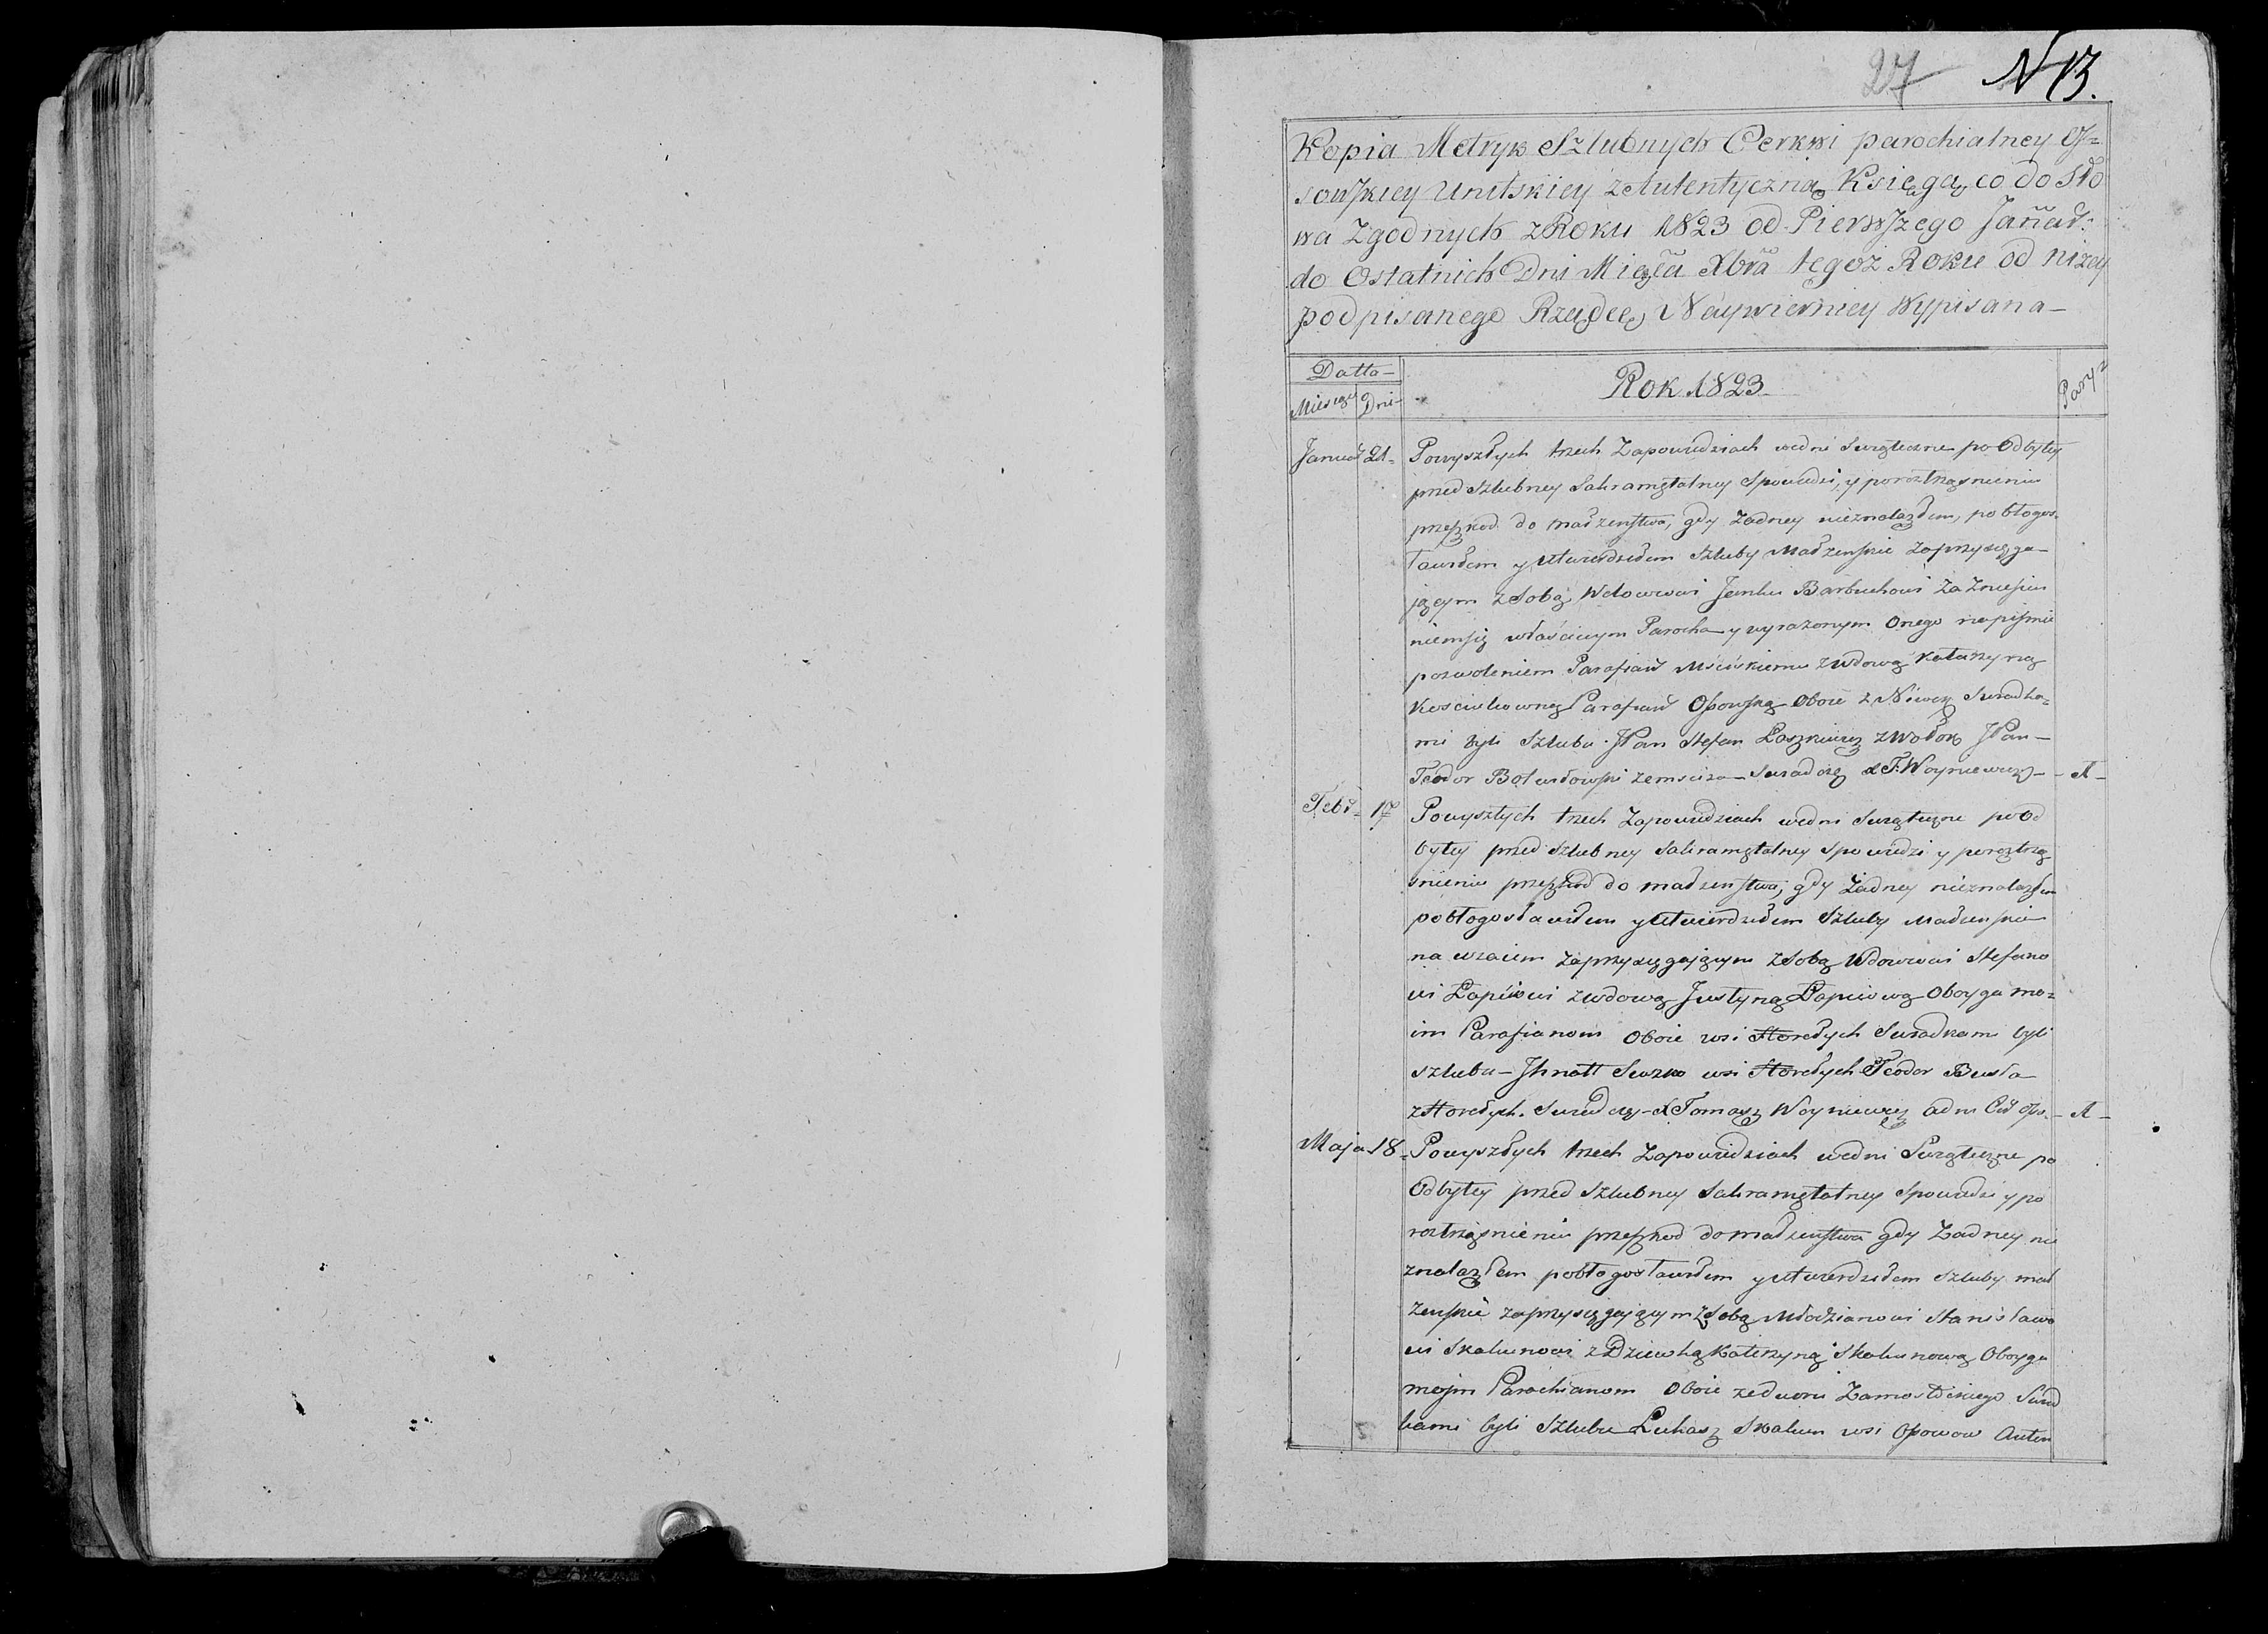 27 N 13.
Kopia Metryk Szlubnych Cerkwi parochialney Os=
sowskiey Unitskiey z Autentyczną Księgą co do Sło
wa Zgodnych z Roku 1823 od Pierwszego Januar:
do Ostatnich Dni Mięca Xbra tegoż Roku od niżey
podpisanego Rządcę Naywierniey Wypisana—
Datta—
Miesiąc Dni
Rok 1823
Pary
Januar 21. Powyszłych trzech Zapowiedziach w dni Swiąteczne po Odbytey
przed Szlubney Sakramętalney Spowiedzi, y po roztrząsnieniu
przeszkod do małżenstwa, gdy żadney nieznalazłem, pobłogos-
ławiłem y utwierdziłem Szluby Małżenskie zaprzysięga—
jącym z Sobą Wdowcowi Janku Barbuchowi za Zniesie
niem się właściwym Parocha y wyrażonym Onego na pismie
pozwoleniem Parafian Mściskiemu z wdową Katarzyną
Parafian Ossowską Oboie z Niwek Swiadka=
mi byli Szlubu JPan Stefan Łaszkiewicz z Wołok JPan—
Teodor z Mscisza— Swiadczę X T. Woyniewicz— A—
Febr. 17 Powyszłych trzech Zapowiedziach w dni Swiąteczne po Od
bytey przed Szlubney Sakramętalney Spowiedzi y po roztrzą
snieniu przeszkod do małżenstwa, gdy żadney nieznalazłem
pobłogosławiłem y utwierdziłem Szluby Małżenskie
na wzaiem zaprzysięgającym z Sobą Wdowcowi Stefano
wi Łapciowi z wdową Justyną Łapciową Oboyga mo=
im Parafianom Oboie wsi Swiadkami byli
szlubu— Jhnatt Suszko wsi Teodor Busła
Swiadczę— X Tomasz Woyniewicz adm Cer Oss.— A—
Maja 18. Powyszłych trzech Zapowiedziach w dni Swiąteczne po
Odbytey przed Szlubney Sakramętalney Spowiedzi y po
roztrząsnieniu przeszkod do małżenstwa gdy Żadney nie
znalazłem pobłogosławiłem y utwierdziłem Szluby mał
żenskie zaprzysięgającym z Sobą Młodzianowi Stanisławo
wi Skakunowi z Dziewką Katerzyną Skakunową Oboyga
mojm Parochianom Oboie ze dworu Zamostockiego Swiad
kami byli Szlubu Łukasz Skakun wsi Ossowow Anton